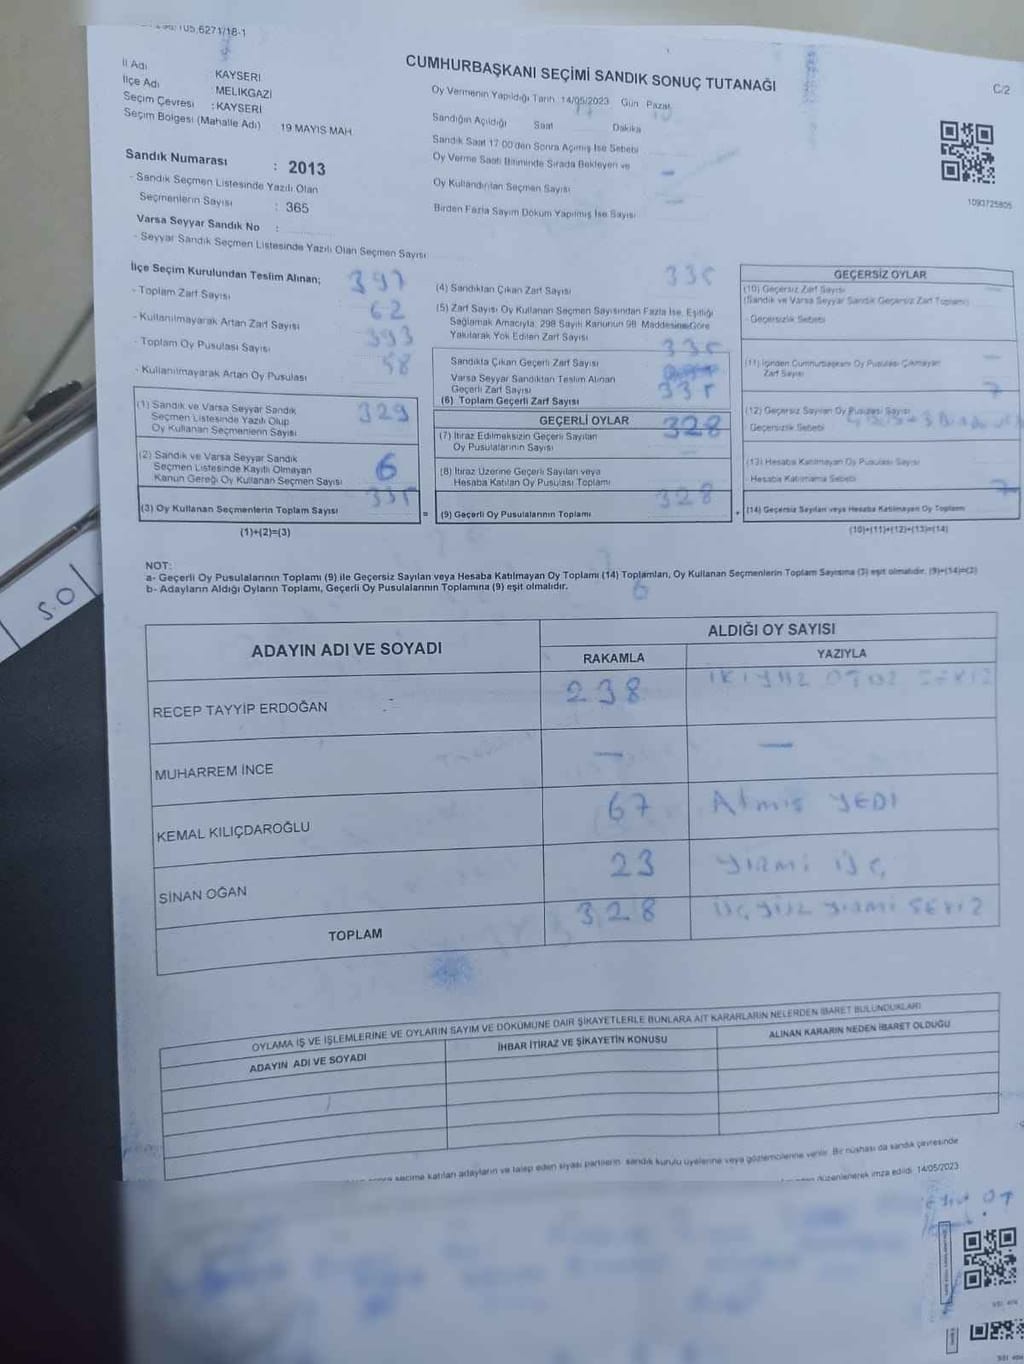 CUMHURBAŞKANI SEÇİMİ SANDIK SONUÇ TUTANAĞI
C/2
İl Adı : KAYSERİ
İlçe Adı : MELİKGAZİ
Seçim Çevresi : KAYSERİ
Seçim Bölgesi (Mahalle Adı) 19 MAYIS MAH.
Sandık Numarası : 2013
- Sandık Seçmen Listesinde Yazılı Olan
Seçmenlerin Sayısı : 365
Varsa Seyyar Sandık No :
- Seyyar Sandık Seçmen Listesinde Yazılı Olan Seçmen Sayısı
Oy Vermenin Yapıldığı Tarih 14/05/2023 Gün Pazar
Sandığın Açıldığı Saat Dakika
Sandık Saat 17.00'den Sonra Açılmış İse Sebebi
Oy Verme Saati Bitiminde Sırada Bekleyen ve
Oy Kullandırılan Seçmen Sayısı
Birden Fazla Sayım Döküm Yapılmış İse Sayısı
1093725805
İlçe Seçim Kurulundan Teslim Alınan;
- Toplam Zarf Sayısı 397
- Kullanılmayarak Artan Zarf Sayısı 62
- Toplam Oy Pusulası Sayısı 393
- Kullanılmayarak Artan Oy Pusulası 58
(1) Sandık ve Varsa Seyyar Sandık
Seçmen Listesinde Yazılı Olup
Oy Kullanan Seçmenlerin Sayısı 329
(2) Sandık ve Varsa Seyyar Sandık
Seçmen Listesinde Kayıtlı Olmayan
Kanun Gereği Oy Kullanan Seçmen Sayısı 6
(3) Oy Kullanan Seçmenlerin Toplam Sayısı 335
(1)+(2)=(3)
(4) Sandıktan Çıkan Zarf Sayısı 335
(5) Zarf Sayısı Oy Kullanan Seçmen Sayısından Fazla İse, Eşitliği
Sağlamak Amacıyla, 298 Sayılı Kanunun 98. Maddesine Göre
Yakılarak Yok Edilen Zarf Sayısı
Sandıkta Çıkan Geçerli Zarf Sayısı 335
Varsa Seyyar Sandıktan Teslim Alınan
Geçerli Zarf Sayısı
(6) Toplam Geçerli Zarf Sayısı 335
GEÇERLİ OYLAR
(7) İtiraz Edilmeksizin Geçerli Sayılan
Oy Pusulalarının Sayısı 328
(8) İtiraz Üzerine Geçerli Sayılan veya
Hesaba Katılan Oy Pusulası Toplamı
= (9) Geçerli Oy Pusulalarının Toplamı 328
GEÇERSİZ OYLAR
(10) Geçersiz Zarf Sayısı
(Sandık ve Varsa Seyyar Sandık Geçersiz Zarf Toplamı)
- Geçersizlik Sebebi
(11) İçinden Cumhurbaşkanı Oy Pusulası Çıkmayan
Zarf Sayısı
(12) Geçersiz Sayılan Oy Pusulası Sayısı 7
Geçersizlik Sebebi
(13) Hesaba Katılmayan Oy Pusulası Sayısı
- Hesaba Katılmama Sebebi
+ (14) Geçersiz Sayılan veya Hesaba Katılmayan Oy Toplamı 7
(10)+(11)+(12)+(13)=(14)
NOT:
a- Geçerli Oy Pusulalarının Toplamı (9) ile Geçersiz Sayılan veya Hesaba Katılmayan Oy Toplamı (14) Toplamları, Oy Kullanan Seçmenlerin Toplam Sayısına (3) eşit olmalıdır. (9)+(14)=(3)
b- Adayların Aldığı Oyların Toplamı, Geçerli Oy Pusulalarının Toplamına (9) eşit olmalıdır.
S.O
ADAYIN ADI VE SOYADI
ALDIĞI OY SAYISI
RAKAMLA YAZIYLA
RECEP TAYYİP ERDOĞAN 238 İKİYÜZ OTUZ SEKİZ
MUHARREM İNCE — —
KEMAL KILIÇDAROĞLU 67 Atmış YEDİ
SİNAN OĞAN 23 Yirmi üç
TOPLAM 328 üçyüz yirmi SEKİZ
OYLAMA İŞ VE İŞLEMLERİNE VE OYLARIN SAYIM VE DÖKÜMÜNE DAİR ŞİKAYETLERLE BUNLARA AİT KARARLARIN NELERDEN İBARET BULUNDUKLARI
ADAYIN ADI VE SOYADI İHBAR İTİRAZ VE ŞİKAYETİN KONUSU ALINAN KARARIN NEDEN İBARET OLDUĞU
seçime katılan adayların ve talep eden siyasi partilerin sandık kurulu üyelerine veya gözlemcilerine verilir. Bir nüshası da sandık çevresinde
düzenlenerek imza edildi. 14/05/2023